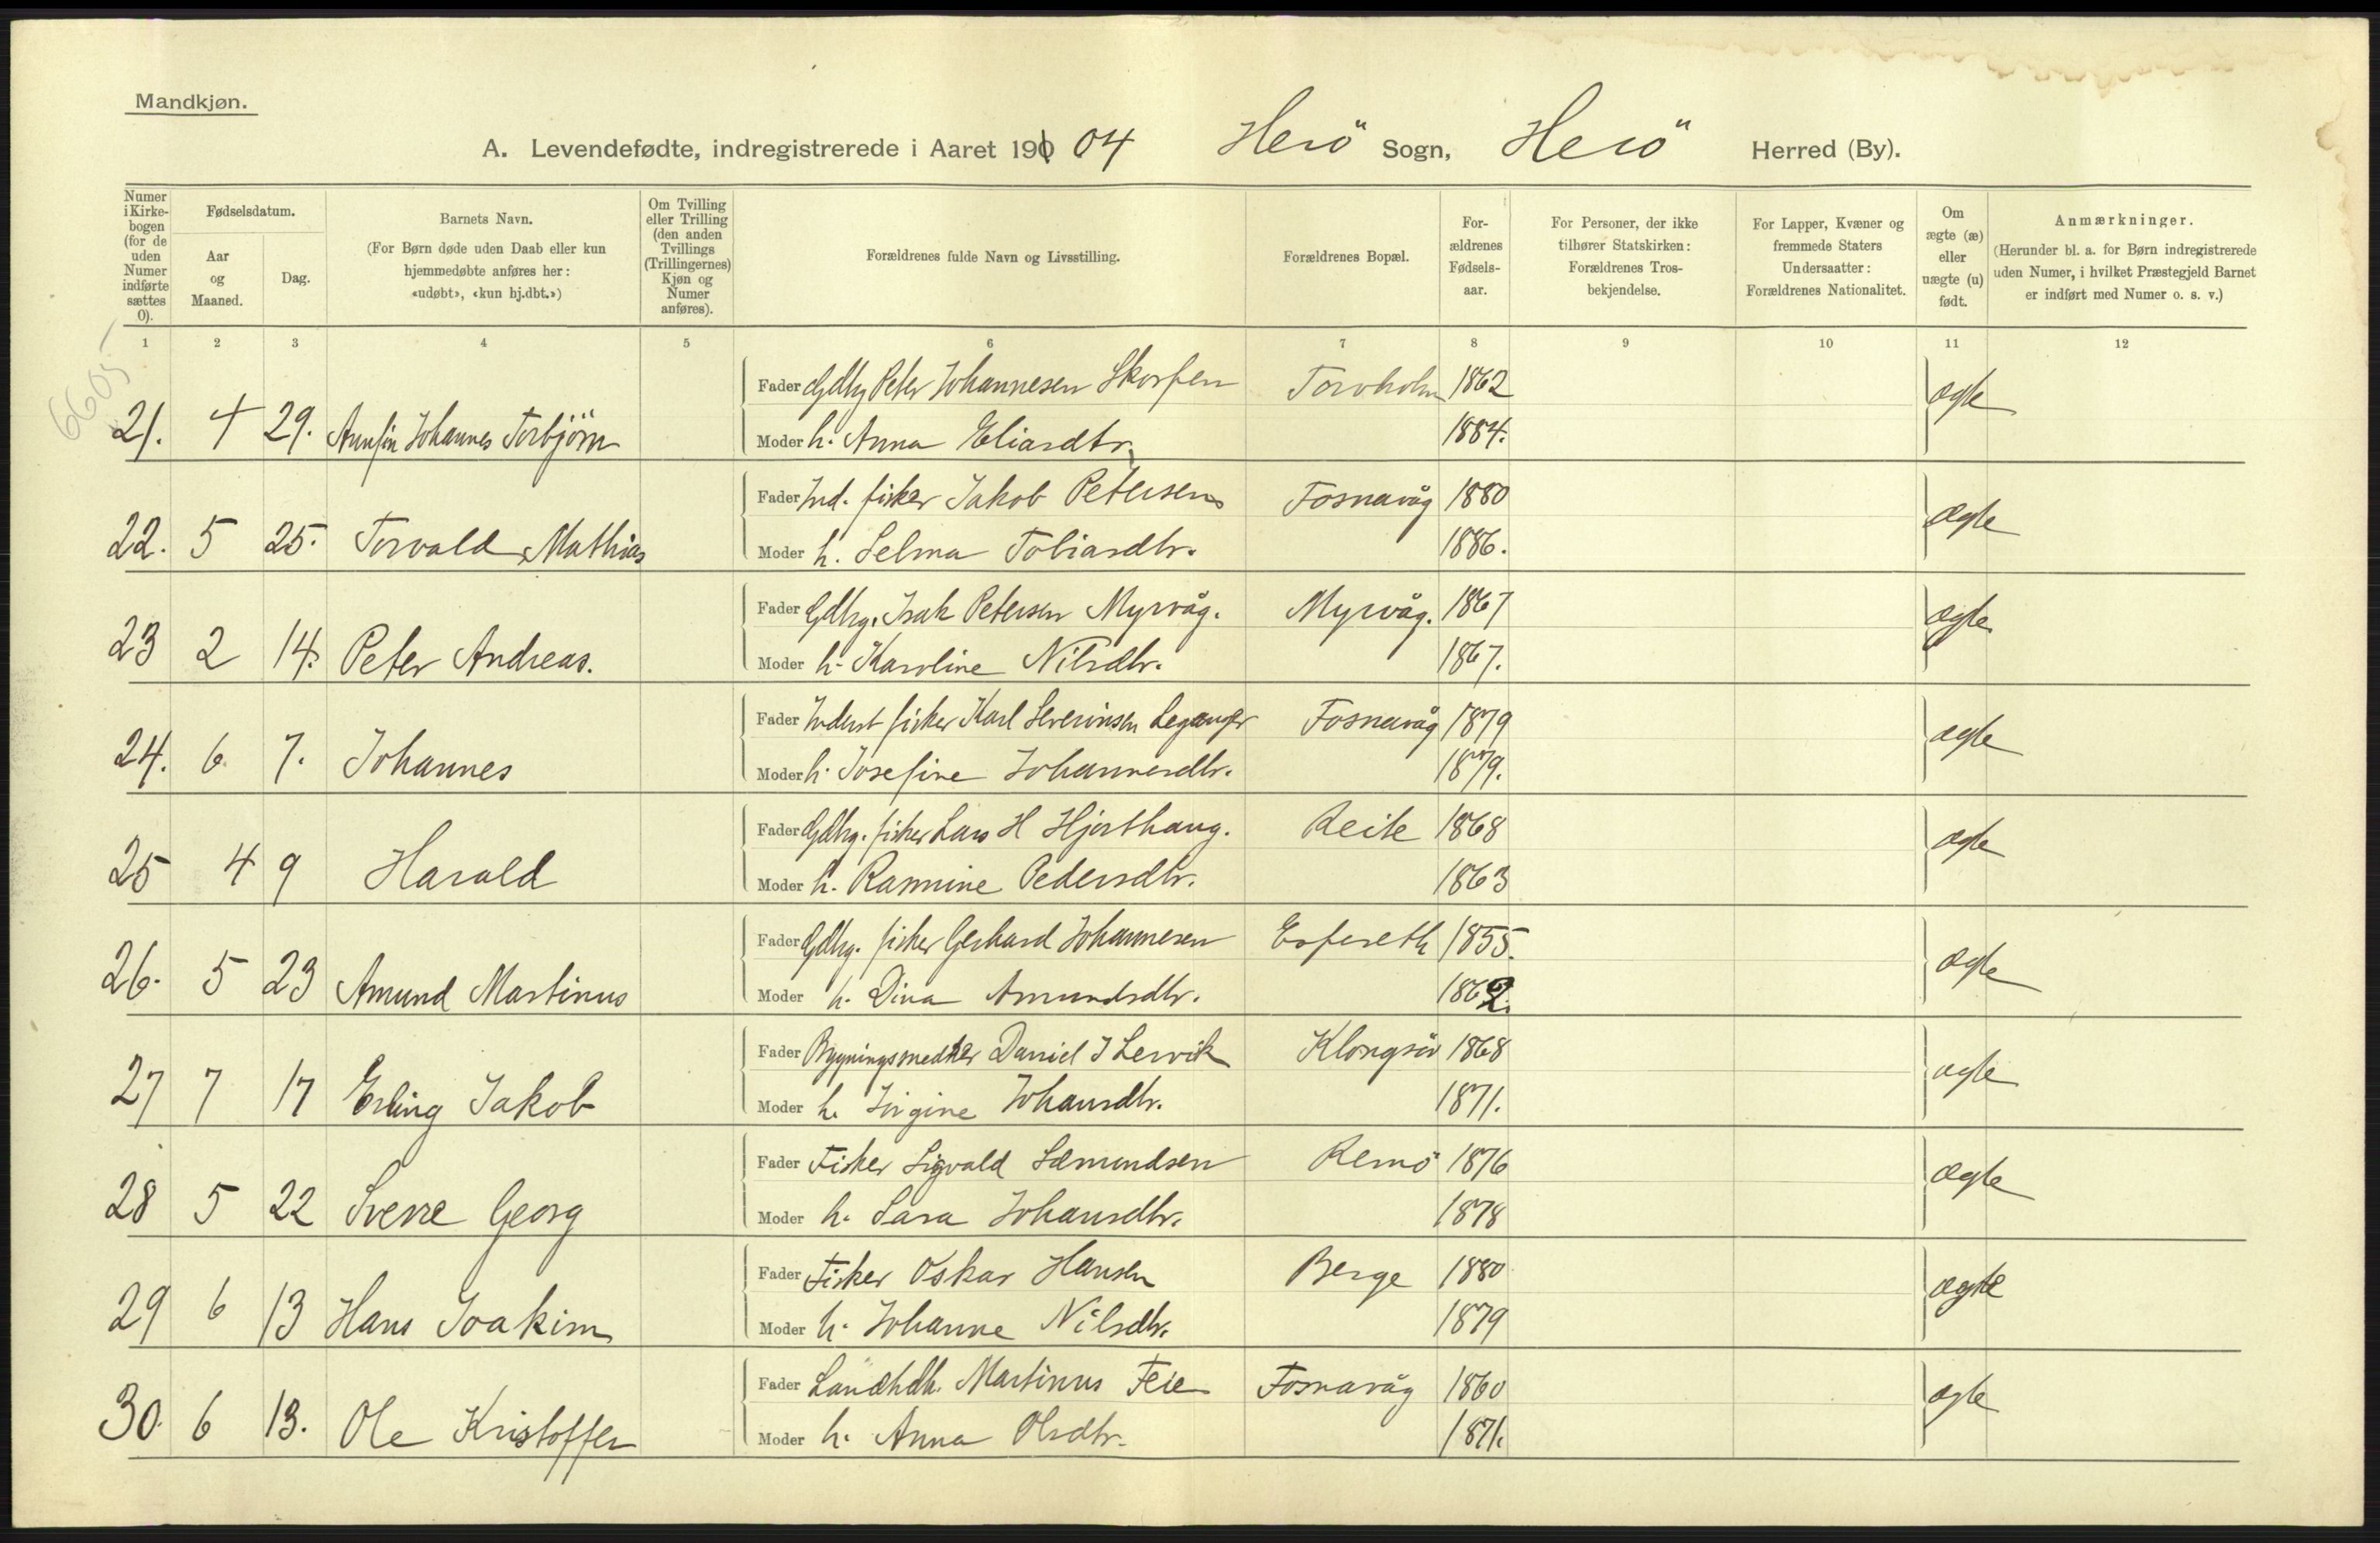 Mandkjøn.
A. Levendefødte, indregistrerede i Aaret 190 04 Herö Sogn, Herö Herred (By).
Numer i Kirke-bogen (for de uden Numer indførte sættes 0).
Fødselsdatum.
Aar og Maaned.
Dag.
Barnets Navn.
(For Børn døde uden Daab eller kun hjemmedøbte anføres her: «udøbt», «kun hj.dbt.»)
Om Tvilling eller Trilling (den anden Tvillings (Trillingernes) Kjøn og Numer anføres).
Forældrenes fulde Navn og Livsstilling.
Forældrenes Bopæl.
For-ældrenes Fødsels-aar.
For Personer, der ikke tilhører Statskirken: Forældrenes Tros-bekjendelse.
For Lapper, Kvæner og fremmede Staters Undersaatter: Forældrenes Nationalitet.
Om ægte (æ) eller uægte (u) født.
Anmærkninger.
(Herunder bl. a. for Børn indregistrerede uden Numer, i hvilket Præstegjeld Barnet er indført med Numer o. s. v.)
1 2 3 4 5 6 7 8 9 10 11 12
6605
Fader Gdbg Peter Johannesen Skorpen Torvholm 1862 ægte
21. 4 29. Annfin Johannes Torbjörn Moder h. Anna Eliasdtr. 1884.
Fader Ind. fisker Jakob Petersen Fosnavåg 1880 ægte
22. 5 25. Torvald Mathias Moder h. Selma Tobiasdtr. 1886.
Fader Gdbrg. Isak Petersen Myrvåg. Myrvåg. 1867 ægte
23 2 14. Peter Andreas. Moder h. Karoline Nilsdtr. 1867.
Fader Inderst fisker Karl Severinsen Leganger Fosnavåg 1879 ægte
24. 6 7. Johannes Moder h. Josefine Johannesdtr. 1879.
Fader Gdbrg. fisker Lars H Hjorthaug. Reite 1868 ægte
25 4 9 Harald Moder h. Rasmine Pedersdtr. 1863
Fader Gdbrg. fisker Gerhard Johannesen Espeseth 1855. ægte
26. 5 23 Amund Martinus Moder h. Dina Amundsdtr. 1862.
Fader Bygningsmedker Daniel J Lervik Klongsöi 1868 ægte
27 7 17 Erling Jakob Moder h. Jörgine Johansdtr. 1871.
Fader Fisker Sigvald Sæmundsen Remö 1876 ægte
28 5 22 Sverre Georg Moder h. Sara Johansdtr. 1878
Fader Fisker Oskar Hansen Berge 1880 ægte
29 6 13 Hans Joakim Moder h. Johanne Nilsdtr. 1879
Fader Landhdlr. Martinus Feie Fosnavåg 1860 ægte
30. 6 13. Ole Kristoffer Moder h. Anna Olsdtr. 1871.